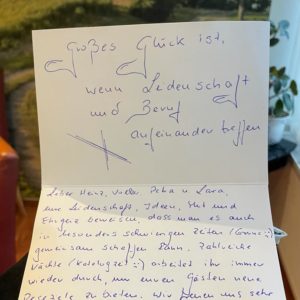 Großes Glück ist,
wenn Leidenschaft
und Beruf
aufeinander treffen
Lieber Heinz, Petra u. Lara,
eure Leidenschaft, Ideen, Mut und
Ehrgeiz beweisen, dass man es auch
in besonders schwierigen Zeiten
gemeinsam schaffen kann. Zahlreiche
Nächte arbeitet ihr immer
wieder durch, um euren Gästen neue
zu bieten. Wir freuen uns sehr